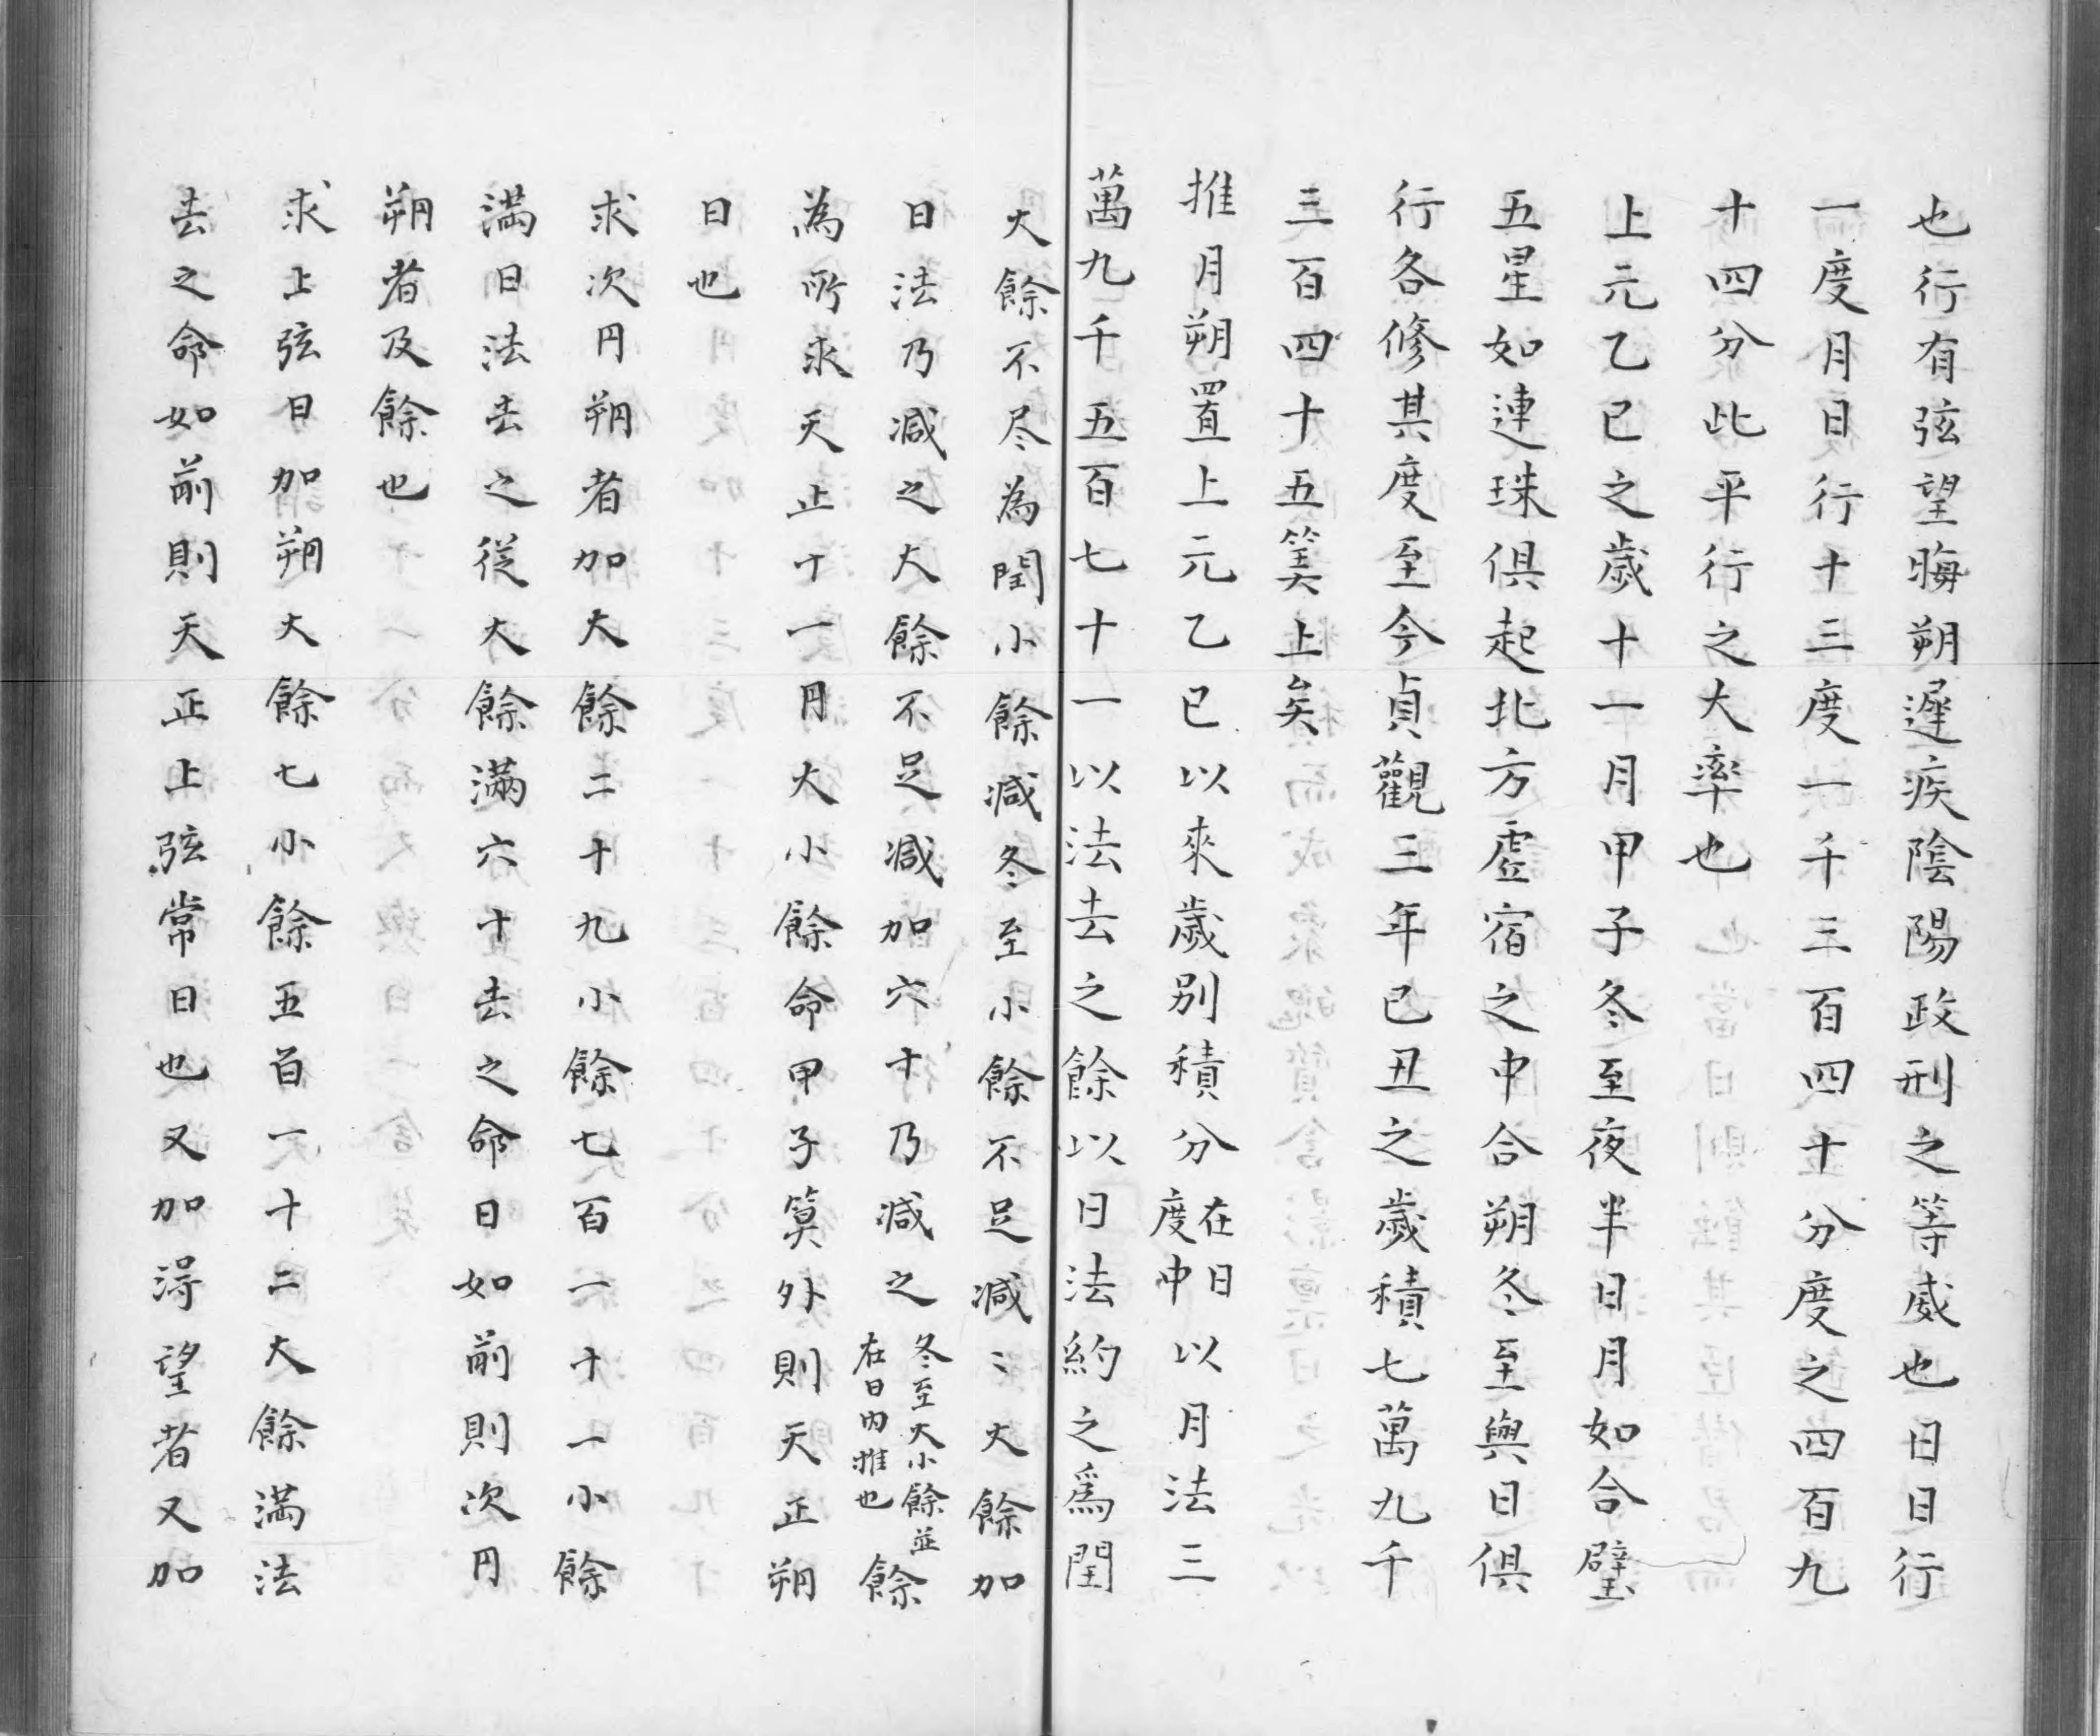 也行有弦望晦朔遲疾陰陽政刑之等威也日日行
一度月日行十三度一千三百四十分度之四百九
十四分此平行之大率也
上元乙巳之歲十一月甲子冬至夜半日月如合璧
五星如連珠俱起北方虛宿之中合朔冬至與日俱
行各修其度至今貞觀三年已丑之歲積七萬九千
三百四十五筭上矣
推月朔置上元乙巳以來歲別積分在日度中以月法三
萬九千五百七十一以法去之餘以日法約之爲閏
大餘不尽為閏小餘减冬至小餘不足减〻大餘加
日法乃减之大餘不足减加六十乃减之冬至大小餘並在日内推也餘
為所求天止十一円大小餘命甲子筭外則天正朔
日也
求次円朔者加大餘二十九小餘七百一十一小餘
満日法去之従大餘滿六十去之命日如前則次円
朔者及餘也
求上弦日加朔大餘七小餘五百一十二大餘満法
去之命如前則天正上弦常日也又加淂望者又加